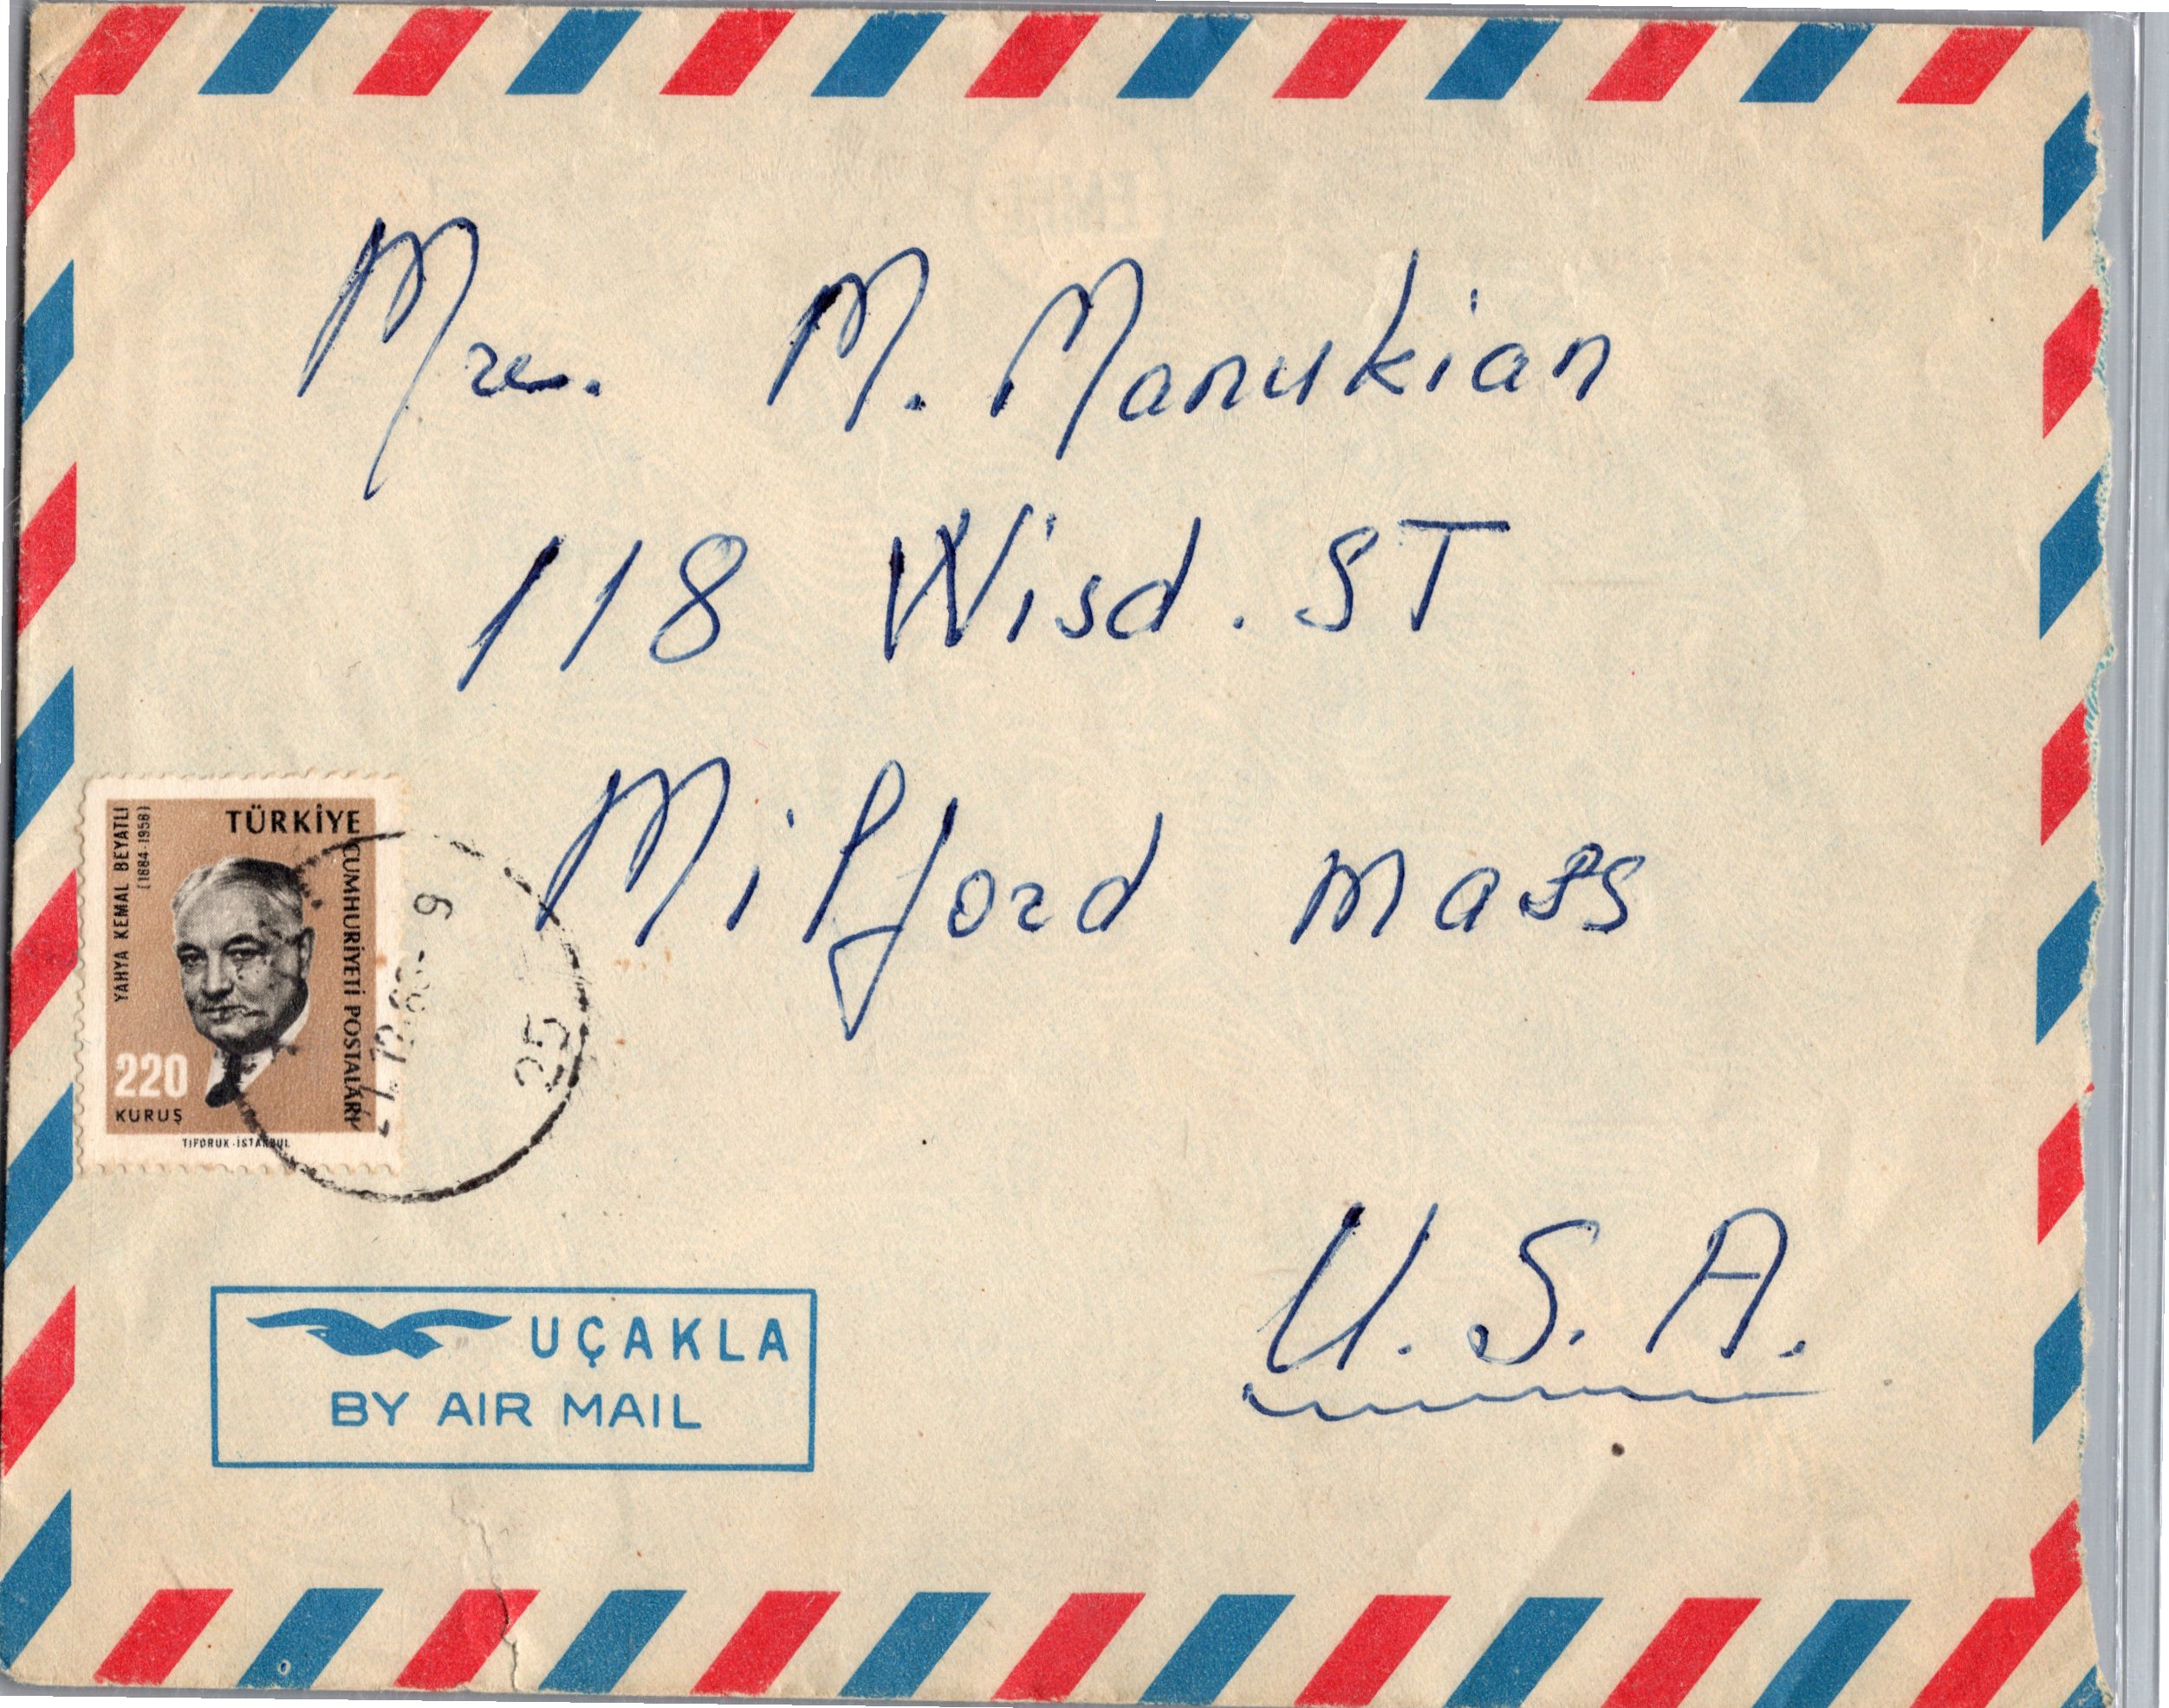 Mrs. M. Manukian
118 Wisd. ST
Milford mass
U.S.A.
TÜRKİYE
CUMHURİYETİ POSTALARI
YAHYA KEMAL BEYATLI
(1884-1958)
220
KURUŞ
TİFDRUK-İSTANBUL
25
UÇAKLA
BY AIR MAIL